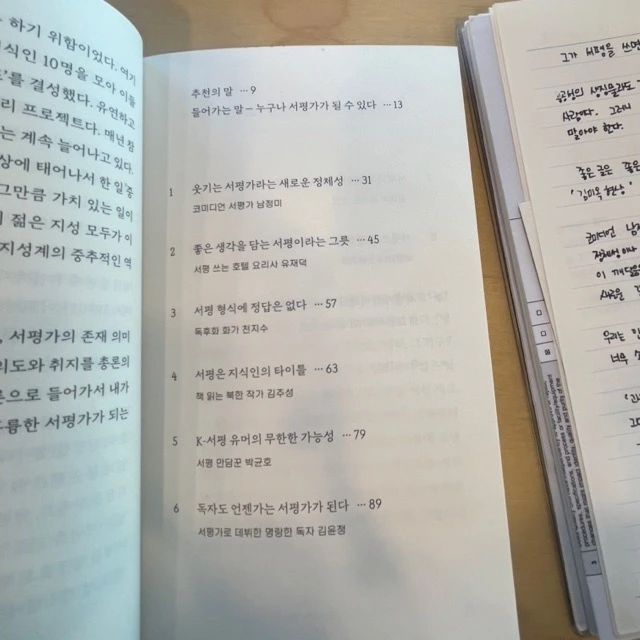 하기 위함이었다. 여기
식인 10명을 모아 이들
를 결성했다. 유연하고
리 프로젝트다. 매년 참
는 계속 늘어나고 있다.
상에 태어나서 한 일 중
그만큼 가치 있는 일이
젊은 지성 모두가 이
지성계의 중추적인 역
서평가의 존재 의미
의도와 취지를 총론의
론으로 들어가서 내가
륭한 서평가가 되는
추천의 말 ··· 9
들어가는 말 – 누구나 서평가가 될 수 있다 ··· 13
1 웃기는 서평가라는 새로운 정체성 ··· 31
코미디언 서평가 남정미
2 좋은 생각을 담는 서평이라는 그릇 ··· 45
서평 쓰는 호텔 요리사 유재덕
3 서평 형식에 정답은 없다 ··· 57
독후화 화가 천지수
4 서평은 지식인의 타이틀 ··· 63
책 읽는 북한 작가 김주성
5 K-서평 유머의 무한한 가능성 ··· 79
서평 만담꾼 박균호
6 독자도 언젠가는 서평가가 된다 ··· 89
서평가로 데뷔한 명랑한 독자 김윤정
그가 서평을 쓰면
사랑이다. 그러니
말아야 한다.
좋은 글은 좋은
'김미옥 현상'
코미디언 남정
이 깨달음
사유를
우리는
너무